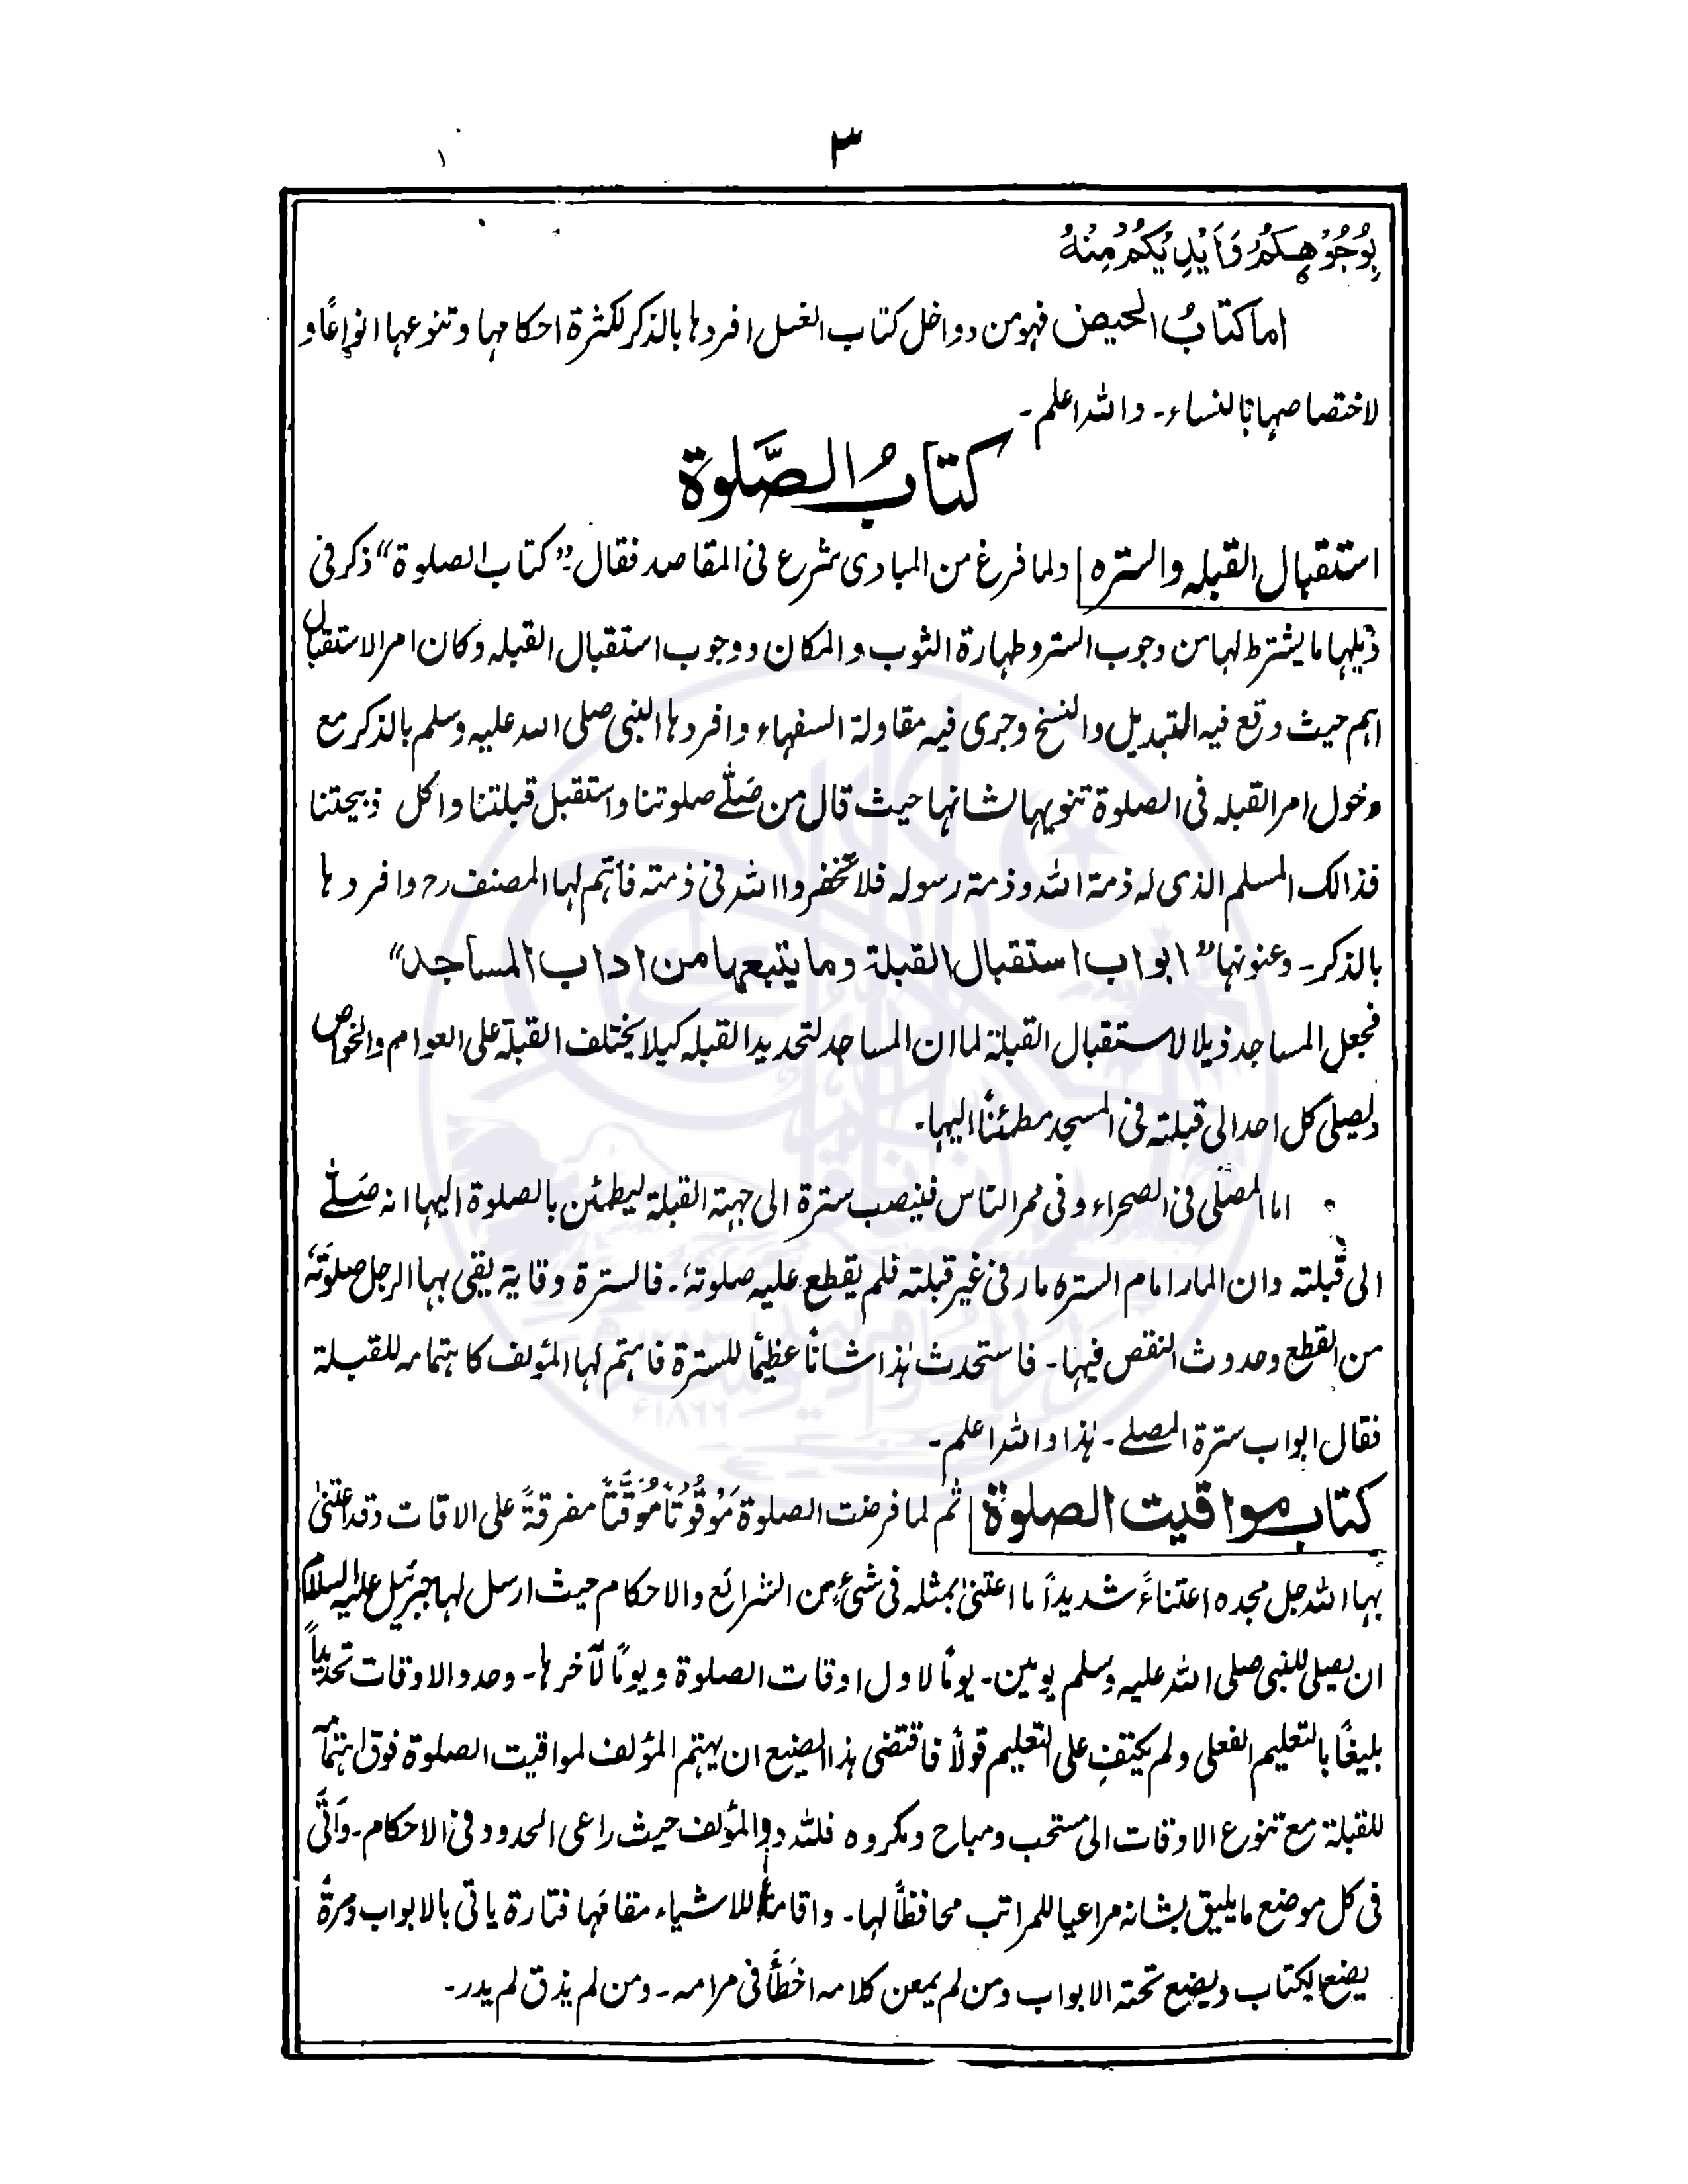 ٣
بِوُجُوْهِكُمْ وَاَيْدِيْكُمْ مِنْهُ
اما كتابُ الحيض فہو من دواخل كتاب الغسل افردہا بالذكر لكثرة احكامہا وتنوعہا انواعًا و
لاختصاصہا بالنساء۔ واللہ اعلم۔
كتابُ الصَّلوة
استقبال القبلہ والسترہ ولما فرغ من المبادی شرع فی المقاصد فقال "كتاب الصلوة" ذكر فی
ذیلہا ما یشترط لہا من وجوب الستر وطہارة الثوب والمكان ووجوب استقبال القبلہ وكان امر الاستقبال
اہم حیث وقع فیہ التبدیل والنسخ وجری فیہ مقاولة السفہاء وافردہا النبی صلی اللہ علیہ وسلم بالذكر مع
دخول امر القبلہ فی الصلوة تنویہا لشانہا حیث قال من صَلّٰے صلوتنا واستقبل قبلتنا واكل ذبیحتنا
فذالك المسلم الذی لہ ذمة اللہ وذمة رسولہ فلا تخفروا اللہ فی ذمتہ فاہتم لہا المصنف رح وافردہا
بالذكر۔ وعنونہا "ابواب استقبال القبلة وما يتبعها من اداب المساجد"
فجعل المساجد ذیلا لاستقبال القبلة لما ان المساجد لتحدید القبلہ كیلا یختلف القبلة علی العوام والخواص
ولیصلی كل احد الی قبلتہ فی المسجد مطمئناً الیہا۔
اما المصلّی فی الصحراء وفی ممر الناس فینصب سترة الی جہة القبلة لیطمئن بالصلوة الیہا انہ صَلّٰے
الی قبلتہ وان المار امام السترہ مار فی غیر قبلتہ فلم یقطع علیہ صلوتہ'۔ فالسترة وقایة یقی بہا الرجل صلوتَہ'
من القطع وحدوث النقص فیہا۔ فاستحدث ہٰذا شاناً عظیماً للسترة فاہتم لہا المؤلف كاہتمامہ للقبلة
فقال ابواب سترة المصلے۔ ہٰذا واللہ اعلم۔
كتاب مواقيت الصلوة ثم لما فرضت الصلوة مَوْقُوْتاً مُوَقَّتاً مفرقةً علی الاقات وقد اعتنیٰ
بہا اللہ جل مجدہ اعتناءً شدیداً ما اعتنیٰ بمثلہ فی شیءٍ من الشرائع والاحكام حیث ارسل لہا جبرئیل علیہ السلام
ان یصلی للنبی صلی اللہ علیہ وسلم یومین۔ یوماً لاول اوقات الصلوة ویوماً لآخرہا۔ وحدد الاوقات تحدیداً
بلیغاً بالتعلیم الفعلی ولم یكتفِ علی التعلیم قولاً فاقتضی ہذا الصنیع ان یہتم المؤلف لمواقیت الصلوة فوق اہتمامہ
للقبلة مع تنوع الاوقات الی مستحب ومباح ومكروہ فللہ در المؤلف حیث راعی الحدود فی الاحكام۔ واَتٰی
فی كل موضع ما یلیق بشانہ مراعیا للمراتب محافظاً لہا۔ واقامة للاشیاء مقامَہا فتارة یاتی بالابواب ومرةً
یضع الكتاب ویضع تحتہ الابواب ومن لم یمعن كلامہ اخطأ فی مرامہ۔ ومن لم یذق لم یدر۔